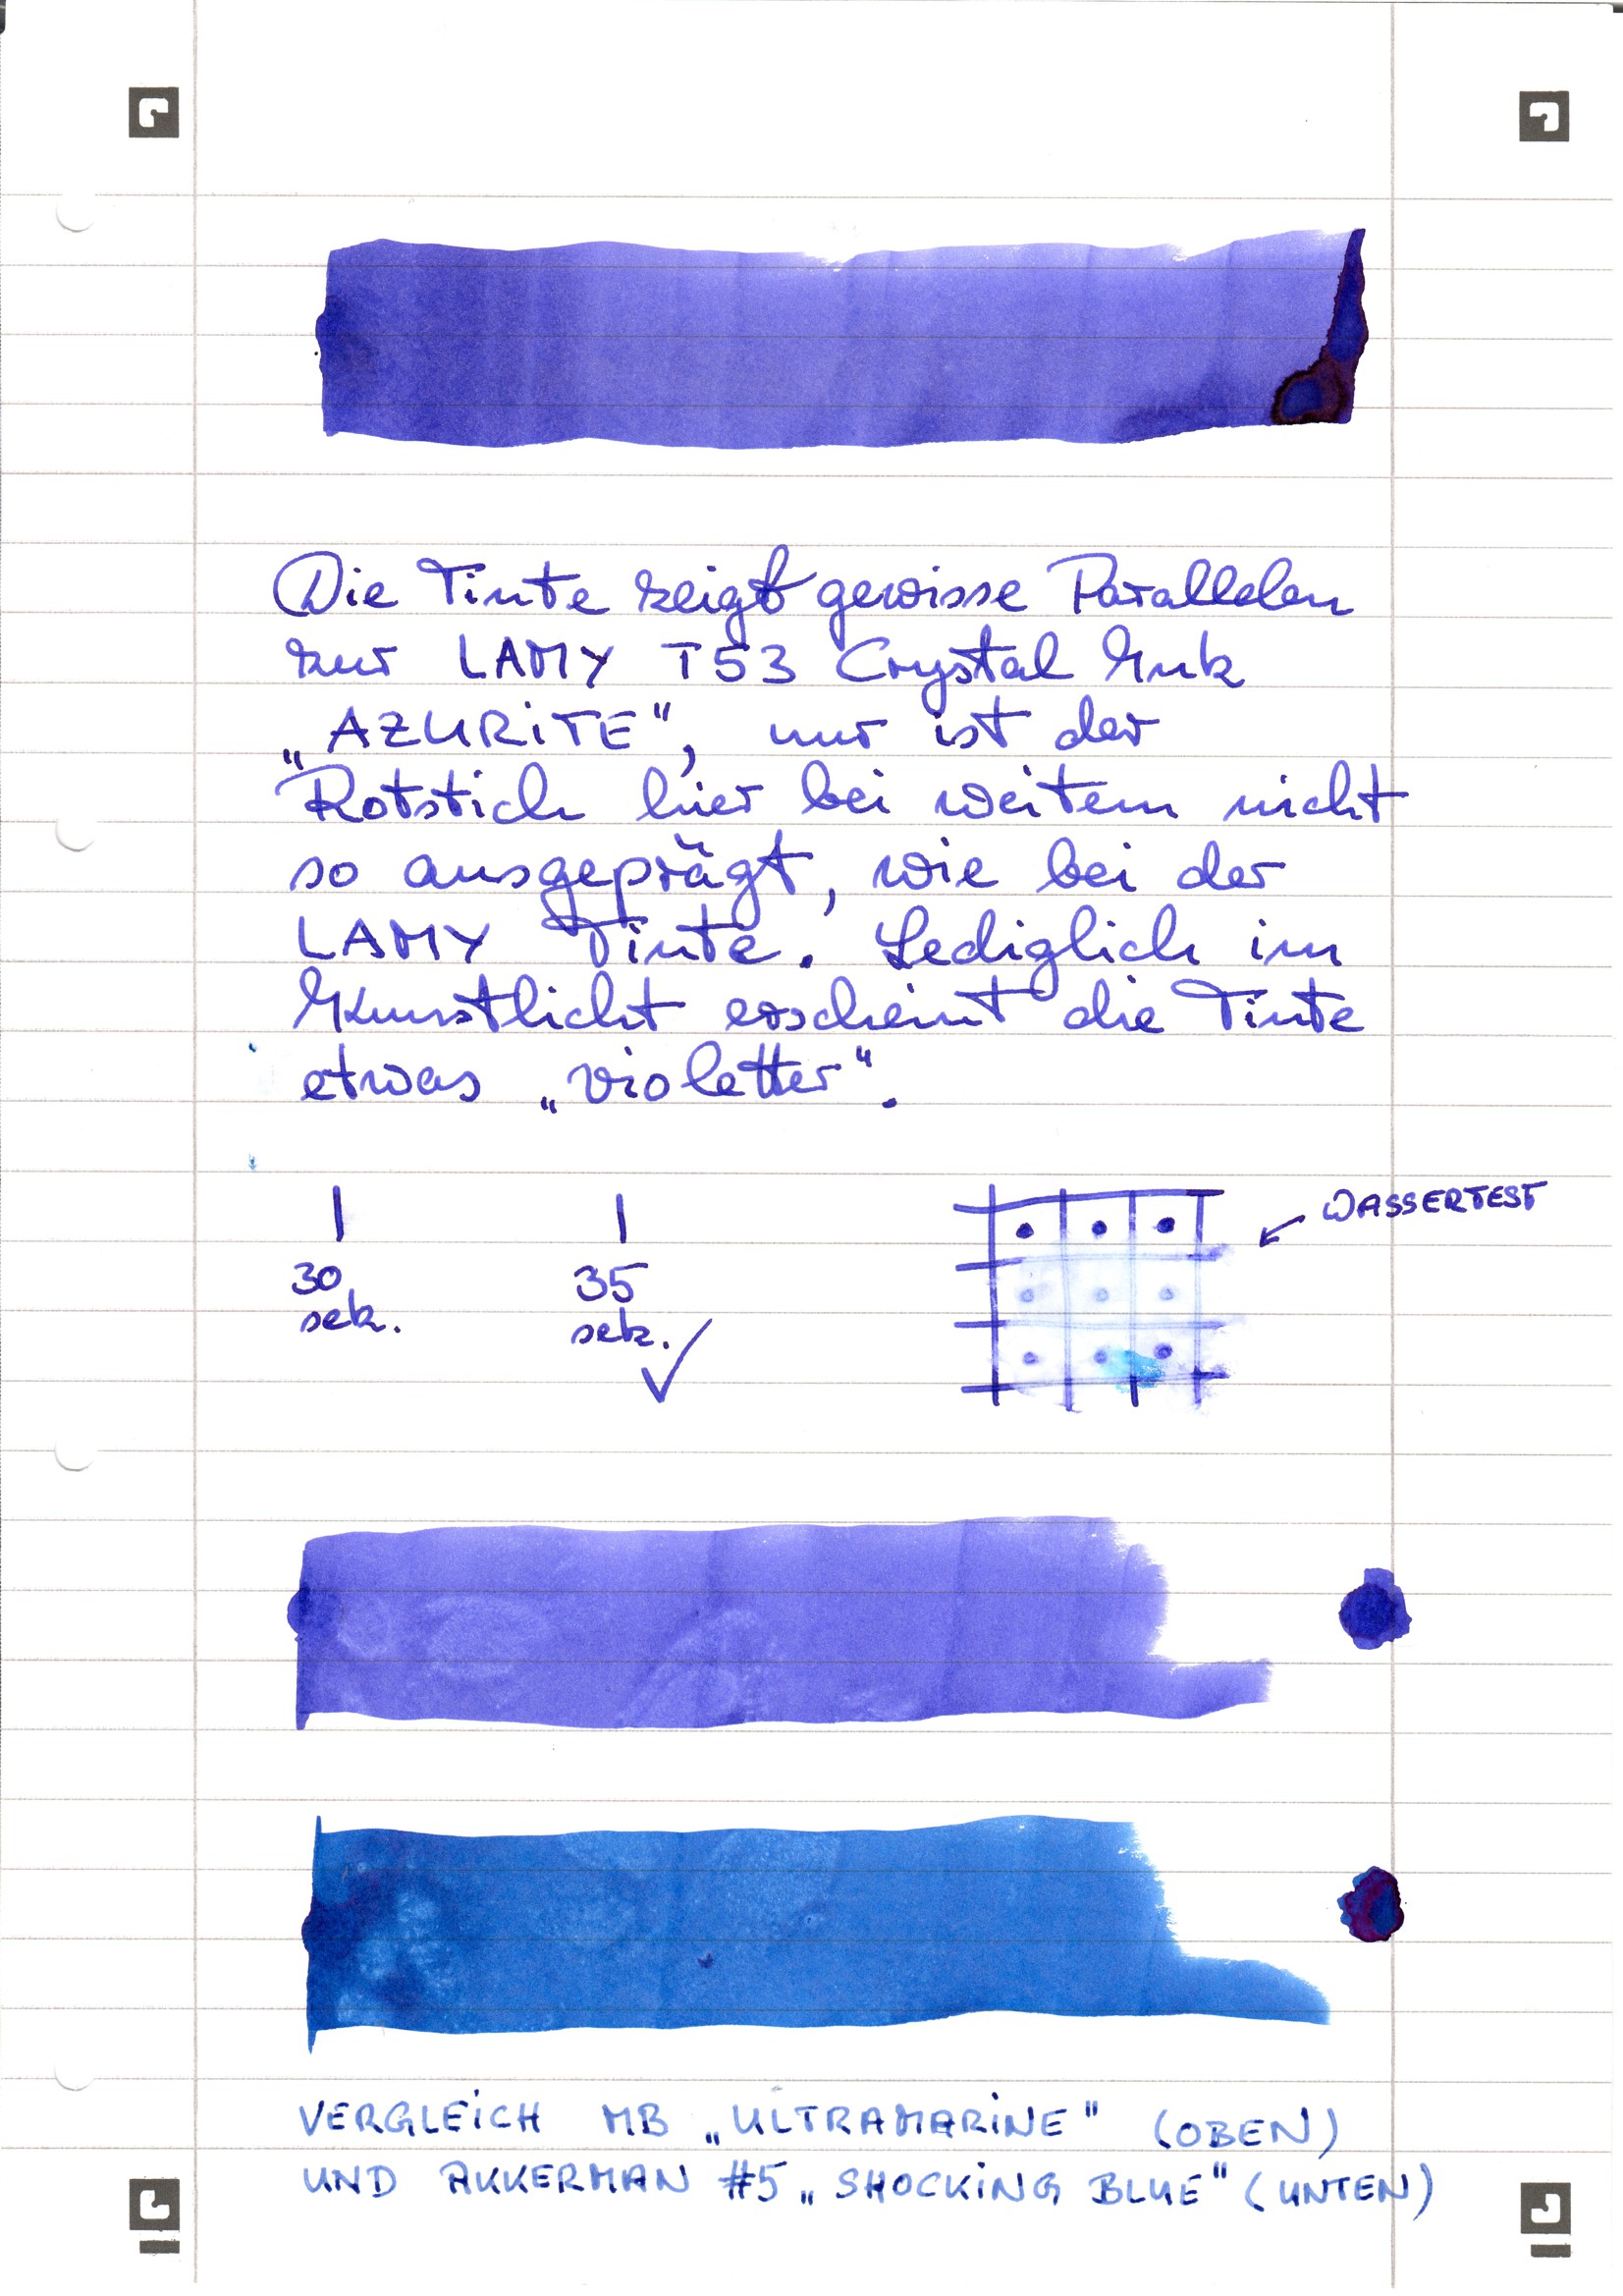 Die Tinte zeigt gewisse Parallelen
zur LAMY T53 Crystal Ink
„AZURiTE", nur ist der
Rotstich hier bei weitem nicht
so ausgeprägt, wie bei der
LAMY Tinte. Lediglich im
Kunstlicht erscheint die Tinte
etwas „violetter".
WASSERTEST
30 sek.
35 sek. ✓
VERGLEiCH MB „ULTRAMARiNE" (OBEN)
UND AKKERMAN #5 „SHOCKiNG BLUE" (UNTEN)